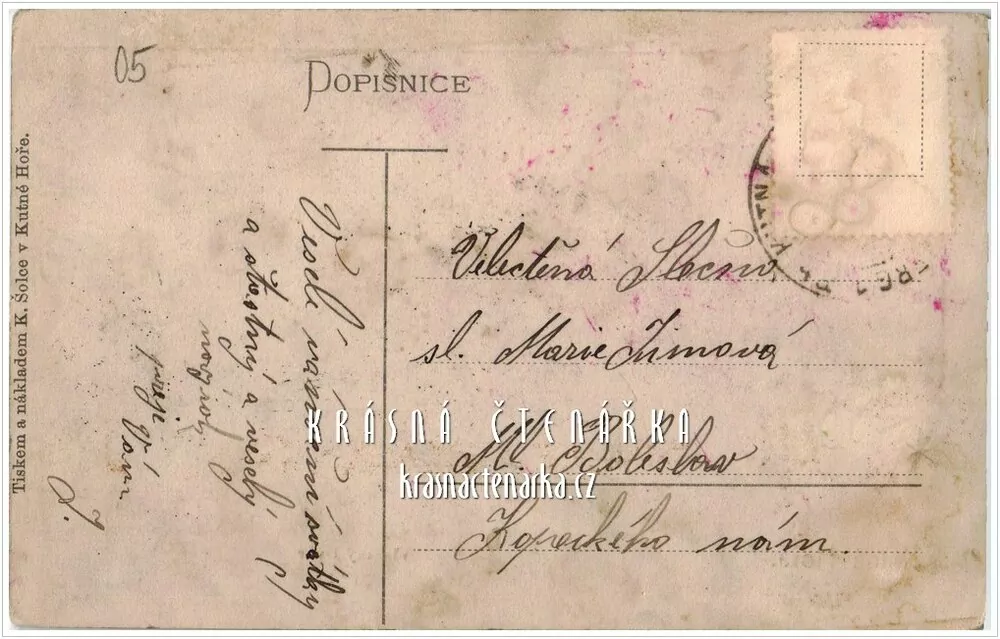 05
DOPISNICE
Tiskem a nákladem K. Šolce v Kutné Hoře.
Veselé vánoční svátky
a šťastný a veselý
nový rok
přeje Vám
J.
Velectěná Slečna
sl. Marie Zimová
Ml. Boleslav
Kopeckého nám.
KRÁSNÁ ČTENÁŘKA
krasnactenarka.cz